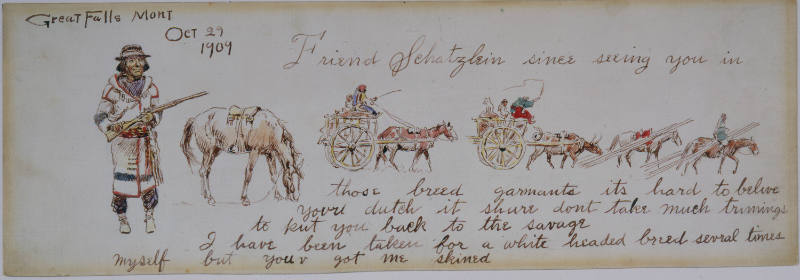 Great Falls Mont
Oct 29
1909
Friend Schatzlein since seeing you in
those breed garmants its hard to belive
youre dutch it shure dont take much trimings
to put you back to the savage
I have been taken for a white headed breed sevral times
myself but youv got me skined